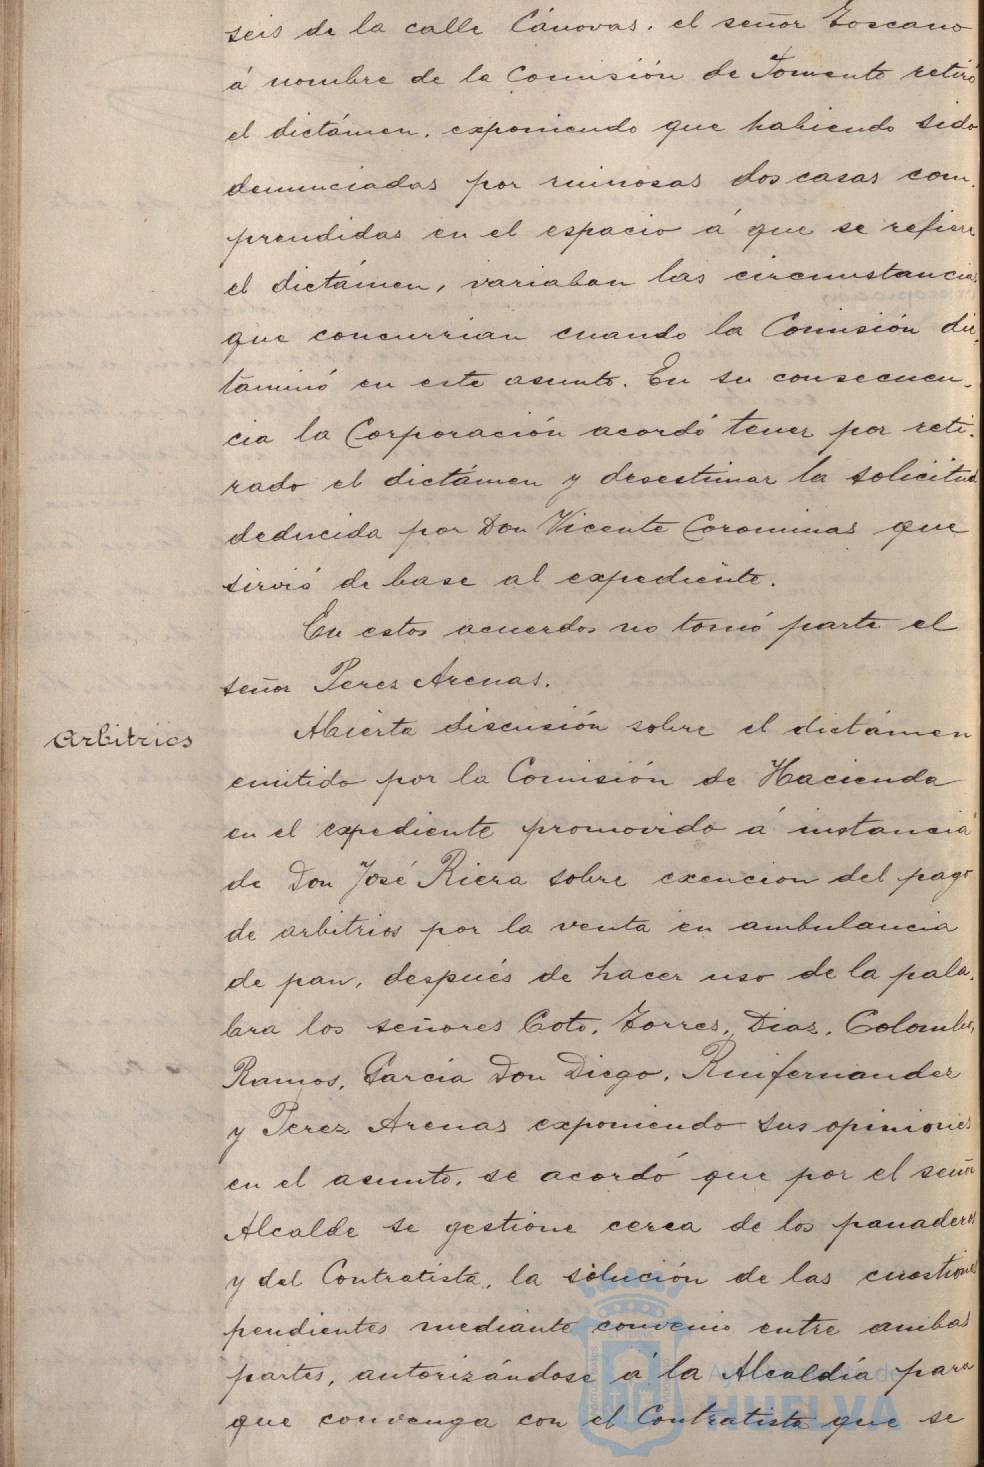 seis de la calle Cánovas. el señor Toscano
á nombre de la Comisión de Fomento retiró
el dictámen, exponiendo que habiendo sido
denunciadas por ruinosas dos casas com-
prendidas en el espacio á que se refiere
el dictámen, variaban las circunstancias
que concurrian cuando la Comisión dic-
taminó en este asunto. En su consecuen-
cia la Corporación acordó tener por reti-
rado el dictámen y desestimar la solicitud
deducida por Don Vicente Corominas que
sirvió de base al expediente.
En estos acuerdos no tomó parte el
señor Perez Arenas.
Arbitrios
Abierta discusión sobre el dictámen
emitido por la Comisión de Hacienda
en el expediente promovido á instancia
de Don José Riera sobre exencion del pago
de arbitrios por la venta en ambulancia
de pan, después de hacer uso de la pala-
bra los señores Coto, Torres, Diaz, Colombo,
Ramos, García Don Diego, Ruifernandez
y Perez Arenas exponiendo sus opiniones
en el asunto, se acordó que por el señor
Alcalde se gestione cerca de los panaderos
y del Contratista, la solución de las cuestiones
pendientes mediante convenio entre ambas
partes, autorizándose á la Alcaldía para
que convenga con el Contratista que se
Ayuntamiento de
HUELVA